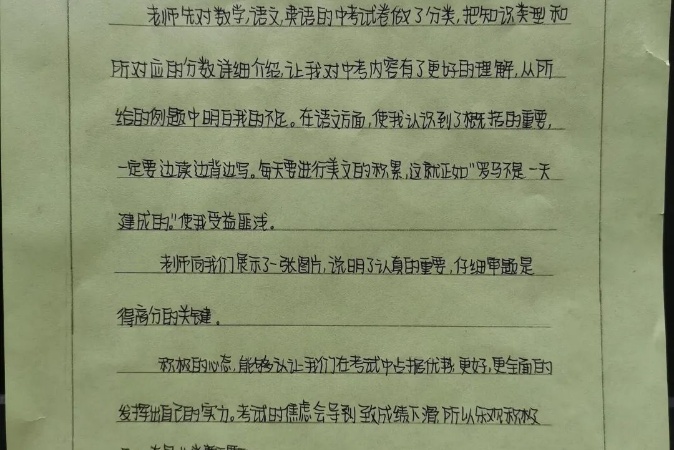 老师先对数学,语文,英语的中考试卷做了分类,把知识类型和
所对应的分数详细介绍,让我对中考内容有了更好的理解,从所
给的例题中明白我的不足。在语文方面,使我认识到了概括的重要,
一定要边读边背边写。每天要进行美文的积累,这就正如“罗马不是一天
建成的。”使我受益匪浅。
老师向我们展示了一张图片,说明了认真的重要,仔细审题是
得高分的关键。
积极的心态,能够认让我们在考试中占据优势,更好,更全面的
发挥出自己的实力。考试时焦虑会导到致成绩下滑,所以乐观积极